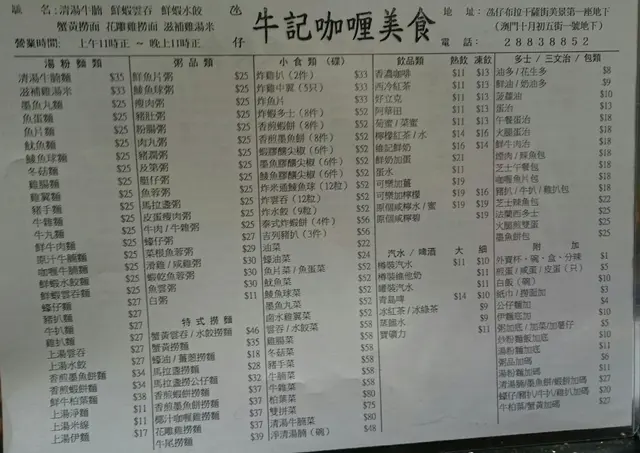 職名:清湯牛腩 鮮蝦雲吞 鮮蝦水餃
蟹黃撈面 花雕雞撈面 滋補雞湯米
營業時間: 上午11時正 ~ 晚上11時正
牛記咖喱美食
地址: 氹仔布拉干薩街美景第一座地下
(澳門十月初五街一號地下)
電話: 28838852
湯粉麵類
清湯牛腩麵 $35
滋補雞湯米 $33
墨魚丸麵 $25
魚蛋麵 $25
魚片麵 $25
魷魚麵 $25
鯪魚球麵 $25
冬菇麵 $25
雞腸麵 $25
雞翼麵 $25
豬手麵 $25
牛雜麵 $25
牛丸麵 $25
鮮牛肉麵 $25
原汁牛腩麵 $25
咖喱牛腩麵 $25
鮮蝦水餃麵 $25
鮮蝦雲吞麵 $25
蠔仔麵 $27
豬扒麵 $27
牛扒麵 $27
雞扒麵 $27
上湯雲吞 $27
上湯水餃 $27
香煎墨魚餅麵 $34
香煎蝦餅麵 $34
鮮牛柏葉麵 $38
上湯淨麵 $11
上湯米線 $11
上湯伊麵 $17
粥品類
鮮魚片粥 $25
鯪魚球粥 $25
瘦肉粥 $25
豬肚粥 $25
粉腸粥 $25
肉丸粥 $25
豬潤粥 $25
及第粥 $25
胆仔粥 $25
魚蓉粥 $25
馬拉盞粥 $25
皮蛋瘦肉粥 $25
牛肉 / 牛雜粥 $25
蠔仔粥 $27
菜根魚蓉粥 $29
滑雞 / 咸雞粥 $30
蝦乾魚蓉粥 $30
魚雲粥 $30
白粥 $11
特式撈麵
蟹黃雲吞 / 水餃撈麵 $46
蟹黃撈麵 $35
蠔油 / 薑蔥撈麵 $18
馬拉盞撈麵 $28
馬拉盞撈公仔麵 $32
香煎墨魚餅撈麵 $37
香煎蝦餅撈麵 $37
椰汁咖喱雞撈麵
花雕雞撈麵
牛尾撈麵 $39
小食類 (碟)
炸雞扒 (2件) $33
炸雞中翼 (5只) $33
炸魚片 $33
炸蝦多士 (8件) $52
香煎蝦餅 (8件) $52
香煎墨魚餅 (8件) $52
蝦膠釀尖椒 (6件) $52
墨魚膠釀尖椒 (6件) $52
鯪魚膠釀尖椒 (6件) $52
炸米通鯪魚球 (12粒) $52
炸雲吞 (12粒) $52
炸水餃 (9粒) $52
泰式炸蝦餅 (4件) $56
吉列豬扒 (3件) $56
油菜 $22
蠔油菜 $24
魚片菜 / 魚蛋菜 $52
魷魚菜 $52
鯪魚球菜 $52
墨魚丸菜 $52
鹵水雞翼菜 $52
雲吞 / 水餃菜 $52
雞腸菜 $52
冬菇菜 $52
豬手菜 $52
牛腩菜 $52
牛雜菜 $52
柏葉菜 $80
雙拼菜 $75
清湯牛腩菜 $80
淨清湯腩 (碗) $48
飲品類 熱飲 凍飲
香濃咖啡 $11 $13
西冷紅茶 $11 $13
好立克 $11 $13
阿華田 $11 $13
菊蜜 / 菜蜜 $11 $13
檸檬紅茶 / 水 $14 $16
維記鮮奶 $14 $16
鮮奶加蛋 $21
蛋水 $11
可樂加薑 $19
可樂加檸檬 $19 $16
原個咸檸水 / 蜜 $19
原個咸檸碧 $19
汽水 / 啤酒 大 細
樽裝汽水 $11 $10
樽裝維他奶 $11
罐裝汽水 $11
青島啤 $14 $10
冰紅茶 / 冰綠茶 $9
蒸餾水 $9
寶礦力 $11
多士 / 三文治 / 包類
油多 / 花生多 $8
鮮油 / 奶油多 $9
菠蘿油 $10
蛋治 $13
午餐蛋治 $18
火腿蛋治 $18
鮮牛肉治 $18
燒肉 / 豚魚包 $18
芝士午餐包 $18
咖喱魚片包 $18
豬扒 / 牛扒 / 雞扒包 $18
芝士辣魚包 $22
法蘭西多士 $25
火腿煎雙蛋 $25
墨魚餅包 $25
附加
外賣杯、碗、盒、分辣 $1
煎蛋 / 咸蛋 / 皮蛋 (只) $5
白飯 (碗) $10
紙巾 / 撈面加 $3
公仔麵加 $4
伊麵底加 $10
粥加底 / 加菜 / 加薑仔 $5
炒粉麵飯加底 $10
湯粉麵加底 $11
粥品加碼 $11
湯粉麵加碼 $11
清湯腩 / 墨魚餅 / 蝦餅加 $27
蠔仔 / 豬扒 / 牛扒 / 雞扒加 $20
牛柏菜 / 蟹黃加碼 $22